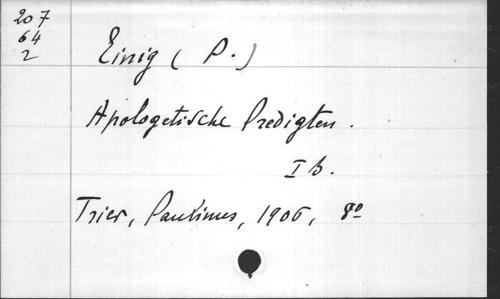 207
64
2
Einig ( P. )
Apologetische Predigten.
I b.
Trier, Paulinus, 1906, 8º